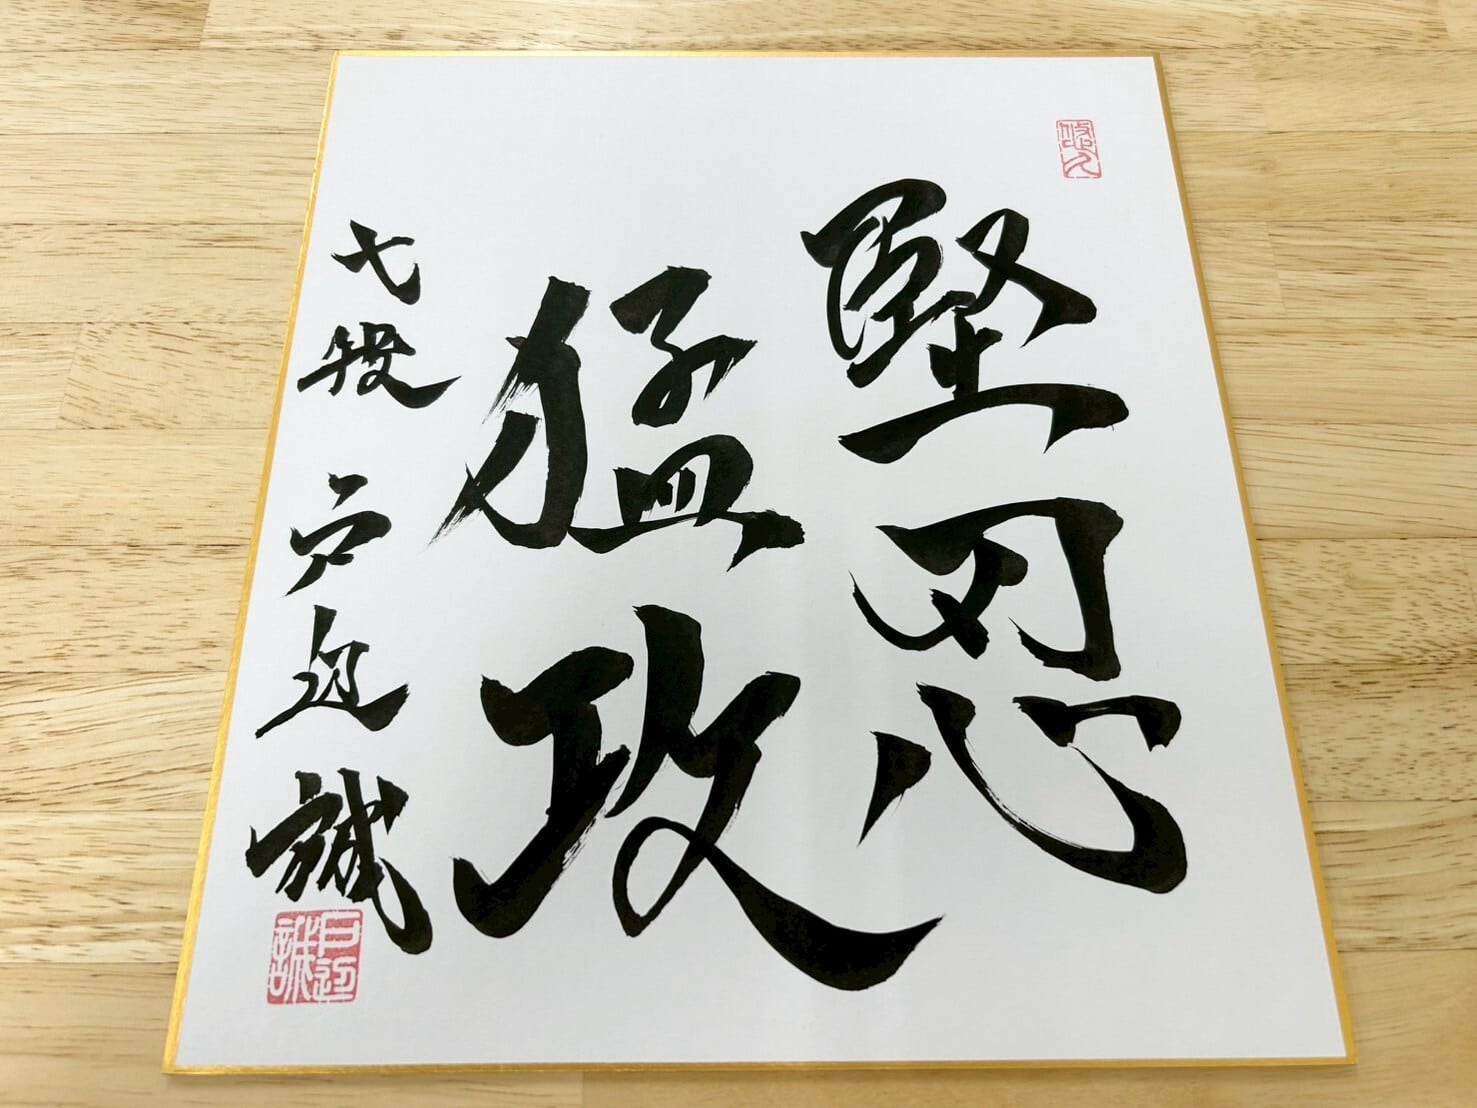 堅忍
猛攻
七段 戸辺誠
悠久
戸辺誠